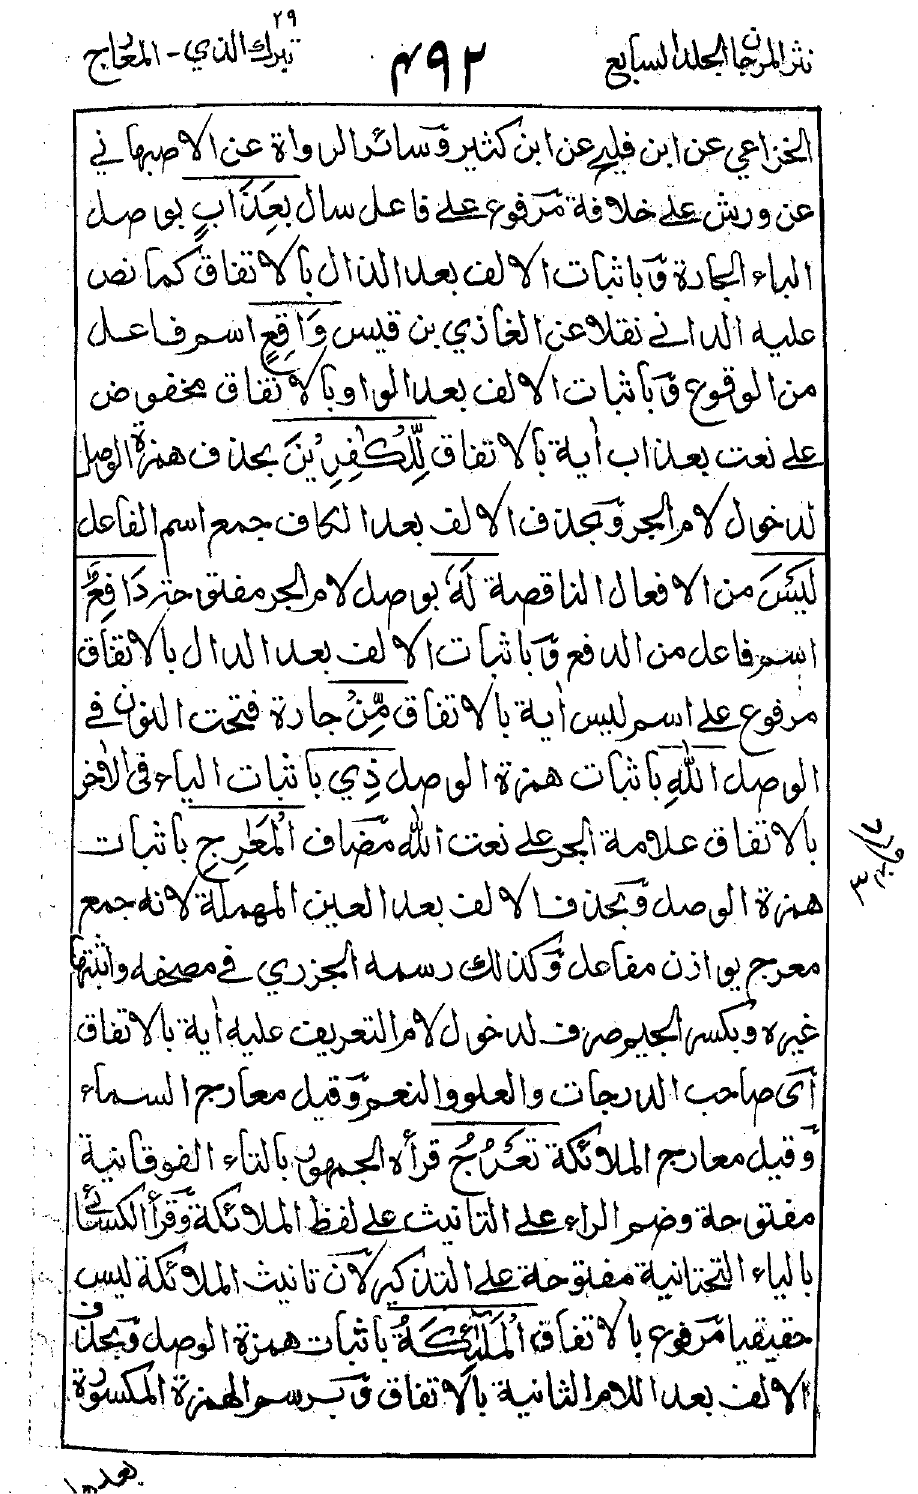 نثر المرجان المجلد السابع
٤٩٢
٢٩
تبرك الذي - المعارج
الخزاعي عن ابن فليح عن ابن كثير وسائر الرواة عن الاصبهاني
عن ورش على خلافة مرفوع على فاعل سال بِعَذَابٍ بوصل
الباء الجارة وباثبات الالف بعد الذال بالاتفاق كما نص
عليه الداني نقلا عن الغازي بن قيس وَاقِعٍ اسم فاعل
من الوقوع وباثبات الالف بعد الواو بالاتفاق مخفوض
على نعت بعذاب أية بالاتفاق لِّلْكٰفِرِيْنَ بحذف همزة الوصل
لدخول لام الجر وبحذف الالف بعد الكاف جمع اسم الفاعل
لَيْسَ من الافعال الناقصة لَهٗ بوصل لام الجر مفتوحة دَافِعٌ
اسم فاعل من الدفع وباثبات الالف بعد الدال بالاتفاق
مرفوع على اسم ليس أية بالاتفاق مِّنَ جارة فتحت النون في
الوصل اللّٰهِ باثبات همزة الوصل ذِي باثبات الياء في الاٰخر
بالاتفاق علامة الجر على نعت الله مضاف الْمَعَٰرِجِ باثبات
همزة الوصل وبحذف الالف بعد العين المهملة لانه جمع
معرج بوازن مفاعل وكذلك رسمه الجزري في مصحفه واثبتها
غيره وبكسر الجيم صرف لدخول لام التعريف عليه أية بالاتفاق
أى صاحب الدرجات والعلو والنعم وقيل معارج السماء
وقيل معارج الملائكة تَعْرُجُ قرأه الجمهور بالتاء الفوقانية
مفتوحة وضم الراء على التانيث على لفظ الملائكة وقرأ الكسائي
بالياء التحتانية مفتوحة على التذكير لان تانيث الملائكة ليس
حقيقيا مرفوع بالاتفاق الْمَلٰٓئِكَةُ باثبات همزة الوصل وبحذف
الالف بعد اللام الثانية بالاتفاق وبرسم الهمزة المكسورة
بعدها